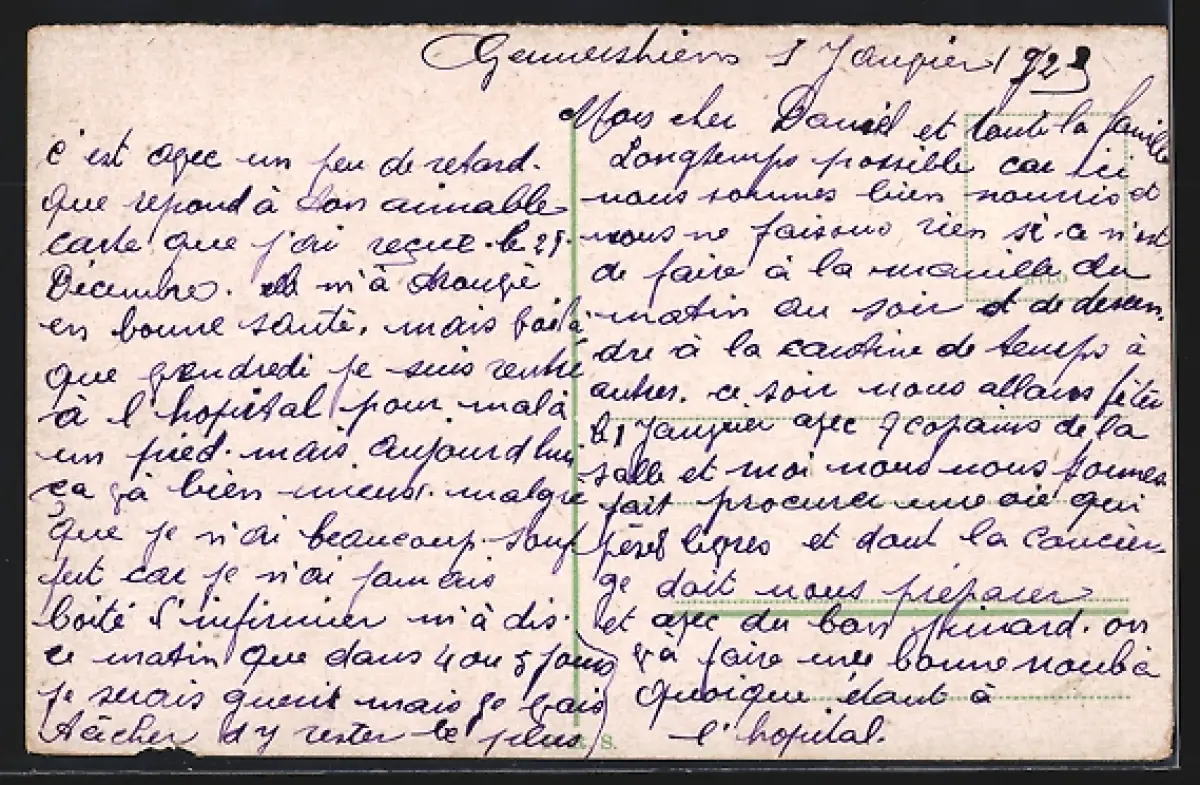 Germersheim 1 Janvier 1923
Mon cher Daniel et toute la famille
c'est avec un peu de retard.
que repond à ton aimable
carte que j'ai reçue le 29
Décembre. elle m'à trouvé
en bonne santé, mais voilà
que vendredi je suis rentré
à l'hopital pour mal à
un pied. mais aujourd'hui
ça và bien mieux. malgré
que je n'ai beaucoup souf
fert car je n'ai jamais
boité l'infirmier m'à dis.
ce matin que dans 4 ou 5 jours
je serais guerit mais je vais
tâcher d'y rester le plus
Longtemps possible car ici
nous sommes bien nourris et
nous ne faisons rien si ce n'est
de faire à la manille du
matin au soir et de descen-
dre à la cantine de temps à
autres. ce soir nous allons fêter
le 1 Janvier avec 7 copains de la
salle et moi nous nous sommes
fait procurer une oie qui
pèse livres et dont la concier-
ge doit nous préparer
et avec du bon pinard. on
và faire une bonne nouba
quoique étant à
l'hopital.
R. S.